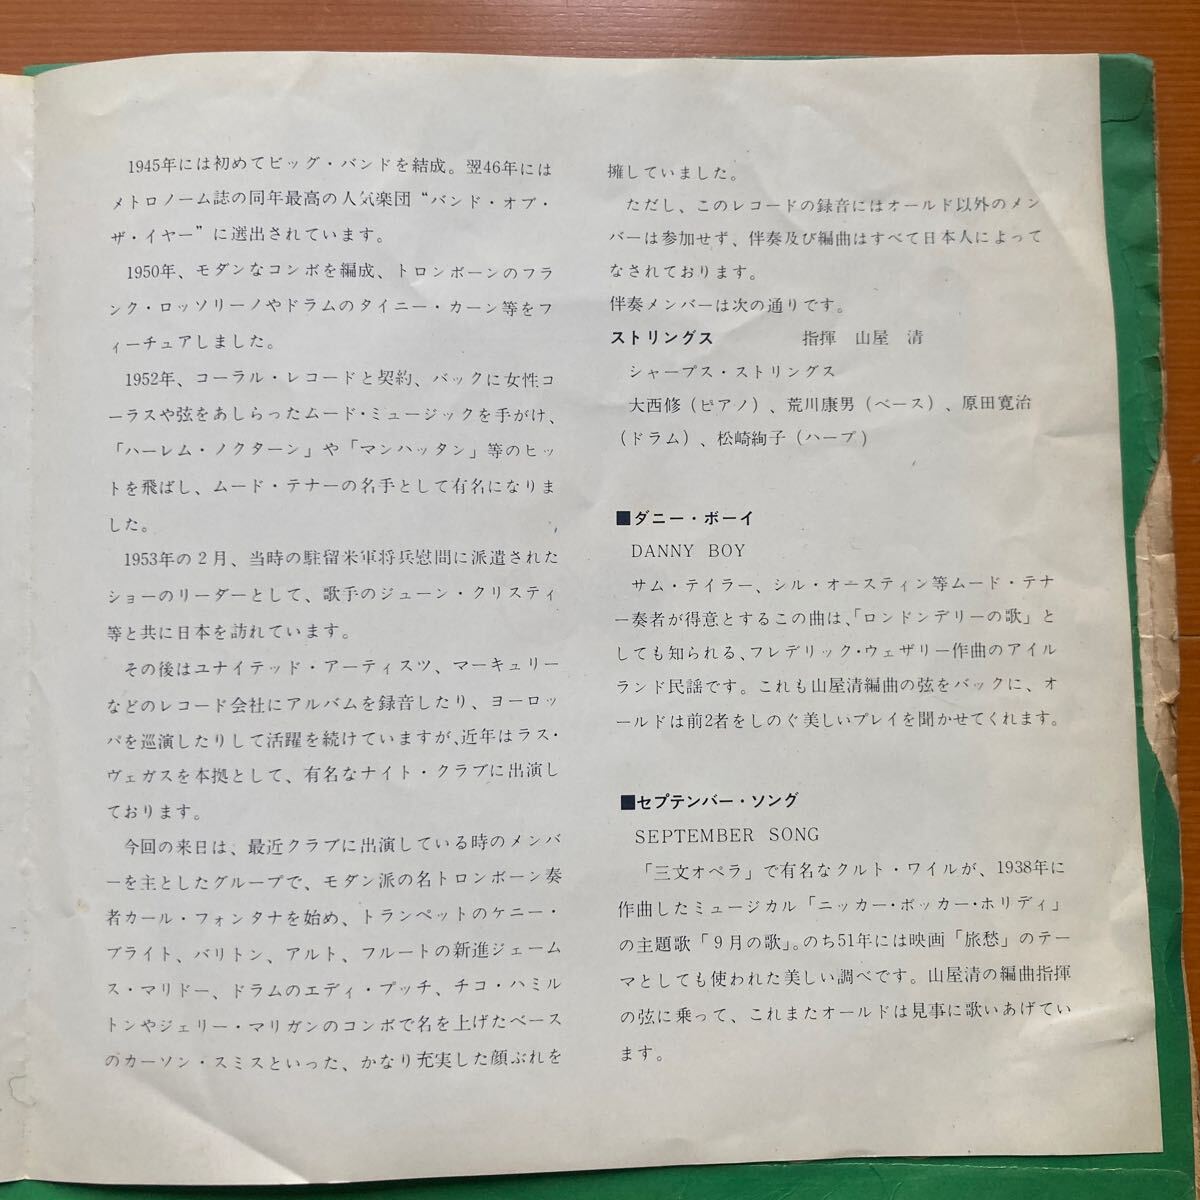 1945年には初めてビッグ・バンドを結成。翌46年には
メトロノーム誌の同年最高の人気楽団“バンド・オブ・
ザ・イヤー”に選出されています。
1950年、モダンなコンボを編成、トロンボーンのフラ
ンク・ロッソリーノやドラムのタイニー・カーン等をフ
ィーチュアしました。
1952年、コーラル・レコードと契約、バックに女性コ
ーラスや弦をあしらったムード・ミュージックを手がけ、
「ハーレム・ノクターン」や「マンハッタン」等のヒッ
トを飛ばし、ムード・テナーの名手として有名になりま
した。
1953年の2月、当時の駐留米軍将兵慰問に派遣された
ショーのリーダーとして、歌手のジューン・クリスティ
等と共に日本を訪れています。
その後はユナイテッド・アーティスツ、マーキュリー
などのレコード会社にアルバムを録音したり、ヨーロッ
パを巡演したりして活躍を続けていますが、近年はラス・
ヴェガスを本拠として、有名なナイト・クラブに出演し
ております。
今回の来日は、最近クラブに出演している時のメンバ
ーを主としたグループで、モダン派の名トロンボーン奏
者カール・フォンタナを始め、トランペットのケニー・
ブライト、バリトン、アルト、フルートの新進ジェーム
ス・マリドー、ドラムのエディ・プッチ、チコ・ハミル
トンやジェリー・マリガンのコンボで名を上げたベース
のカーソン・スミスといった、かなり充実した顔ぶれを
擁していました。
ただし、このレコードの録音にはオールド以外のメン
バーは参加せず、伴奏及び編曲はすべて日本人によって
なされております。
伴奏メンバーは次の通りです。
ストリングス 指揮 山屋 清
シャープス・ストリングス
大西修(ピアノ)、荒川康男(ベース)、原田寛治
(ドラム)、松崎絢子(ハープ)
■ダニー・ボーイ
DANNY BOY
サム・テイラー、シル・オースティン等ムード・テナ
ー奏者が得意とするこの曲は、「ロンドンデリーの歌」と
しても知られる、フレデリック・ウェザリー作曲のアイル
ランド民謡です。これも山屋清編曲の弦をバックに、オ
ールドは前2者をしのぐ美しいプレイを聞かせてくれます。
■セプテンバー・ソング
SEPTEMBER SONG
「三文オペラ」で有名なクルト・ワイルが、1938年に
作曲したミュージカル「ニッカー・ボッカー・ホリディ」
の主題歌「9月の歌」。のち51年には映画「旅愁」のテー
マとしても使われた美しい調べです。山屋清の編曲指揮
の弦に乗って、これまたオールドは見事に歌いあげてい
ます。